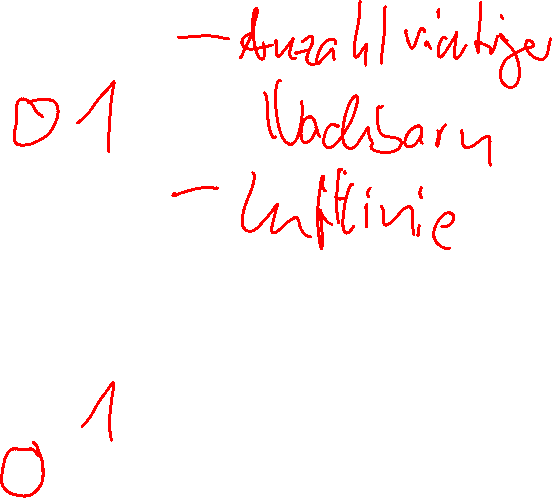 - Anzahl richtiger
1 Nachbarn
- Luftlinie
1